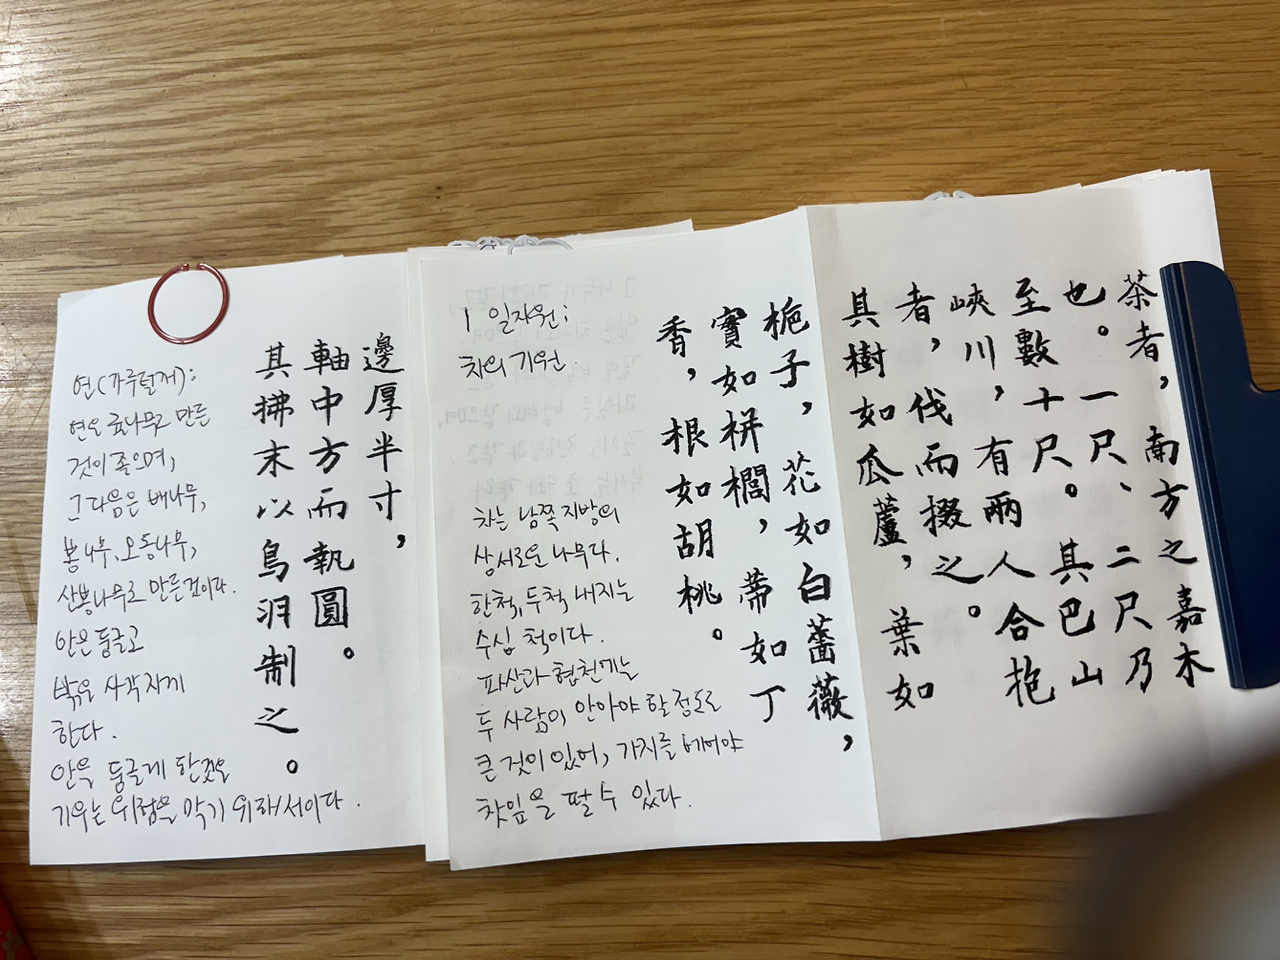 茶者，南方之嘉木
也。一尺、二尺乃
至數十尺。其巴山
峽川，有兩人合抱
者，伐而掇之。
其樹如瓜蘆，葉如
栀子，花如白薔薇，
實如栟櫚，蒂如丁
香，根如胡桃。
1 일자원;
차의 기원.
차는 남쪽 지방의
상서로운 나무다.
한척, 두척 내지는
수십 척이다.
파산과 협천에는
두 사람이 안아야 할 정도로
큰 것이 있어, 가지를 베어야
찻잎을 딸 수 있다.
邊厚半寸，
軸中方而執圓。
其拂末以鳥羽制之。
연(가루럴거);
연은 귤나무로 만든
것이 좋으며,
그 다음은 배나무,
뽕나무, 오동나무,
산뽕나무로 만든것이다.
안은 둥글고
밖은 사각지게
한다.
안을 둥글게 한것은
기우는 위험을 막기 위해서이다.